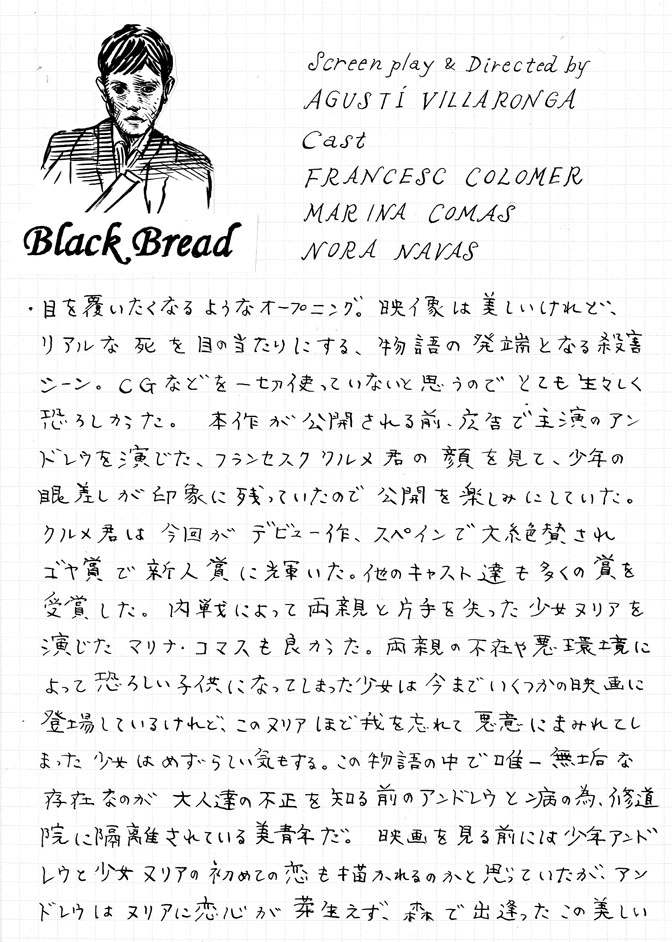 Screenplay & Directed by
AGUSTÍ VILLARONGA
Cast
FRANCESC COLOMER
MARINA COMAS
NORA NAVAS
Black Bread
・目を覆いたくなるようなオープニング。映像は美しいけれど、
リアルな死を目の当たりにする、物語の発端となる殺害
シーン。CGなどを一切使っていないと思うのでとても生々しく
恐ろしかった。 本作が公開される前、広告で主演のアン
ドレウを演じた、フランセスク クルメ君の顔を見て、少年の
眼差しが印象に残っていたので公開を楽しみにしていた。
クルメ君は今回がデビュー作、スペインで大絶賛され
ゴヤ賞で新人賞に輝いた。他のキャスト達も多くの賞を
受賞した。内戦によって両親と片手を失った少女ヌリアを
演じたマリナ・コマスも良かった。両親の不在や悪環境に
よって恐ろしい子供になってしまった少女は今までいくつかの映画に
登場しているけれど、このヌリアほど我を忘れて悪意にまみれてし
まった少女はめずらしい気もする。この物語の中で唯一無垢な
存在なのが大人達の不正を知る前のアンドレウと病の為、修道
院に隔離されている美青年だ。 映画を見る前には少年アンド
レウと少女ヌリアの初めての恋も描かれるのかと思っていたが、アン
ドレウはヌリアに恋心が芽生えず、森で出逢ったこの美しい